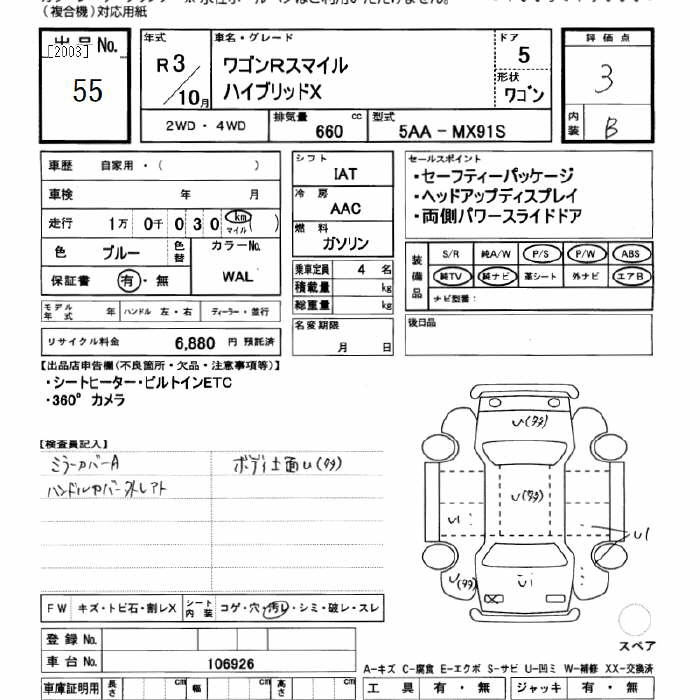 (複合機)対応用紙
出品No.
[2003]
55
年式
R3/10月
車名・グレード
ワゴンRスマイル
ハイブリッドX
ドア
5
形状
ワゴン
評価点
3
内装
B
2WD・4WD
排気量
660 cc
型式
5AA－MX91S
車歴 自家用・( )
車検 年 月
走行 1万 0千 0 3 0 km マイル ( )
色 ブルー
色替
カラーNo.
WAL
保証書 有・無
モデル年式 年 ハンドル 左・右 ディーラー・並行
リサイクル料金 6,880 円 預託済
シフト
IAT
冷房
AAC
燃料
ガソリン
乗車定員 4 名
積載量 kg
総重量 kg
名変期限
月 日
セールスポイント
・セーフティーパッケージ
・ヘッドアップディスプレイ
・両側パワースライドドア
装備品
S/R 純A/W P/S P/W ABS
純TV 純ナビ 革シート 外ナビ エアB
ナビ型番：
後日品
【出品店申告欄(不良箇所・欠品・注意事項等)】
・シートヒーター・ビルトインETC
・360° カメラ
【検査員記入】
ミラーカバーA
ハンドルカバー外しアト
ボディ上面U(タタ)
U(タタ)
U(タタ)
U1
U1
U(タタ)
U1
スペア
FW キズ・トビ石・割レX シート内装 コゲ・穴・汚レ・シミ・破レ・スレ
登録No.
車台No. 106926
車庫証明用 長さ cm 幅 cm 高さ cm
A−キズ C−腐食 E−エクボ S−サビ U−凹ミ W−補修 XX−交換済
工具 有・無 ジャッキ 有・無